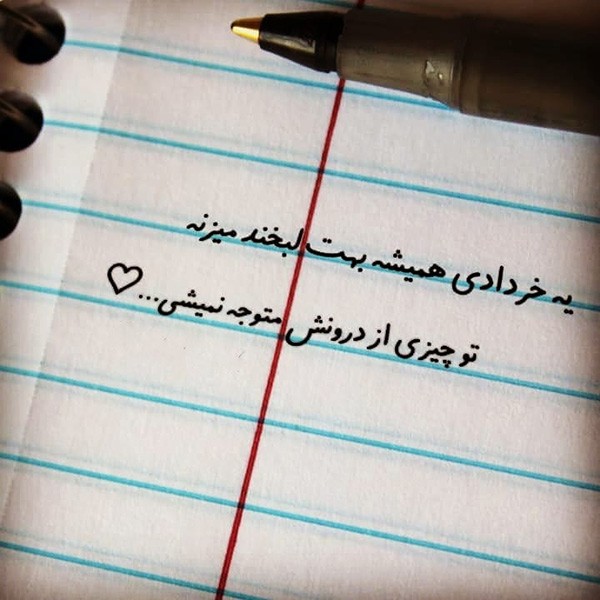 یه خردادی همیشه بهت لبخند میزنه
تو چیزی از درونش متوجه نمیشی...♡